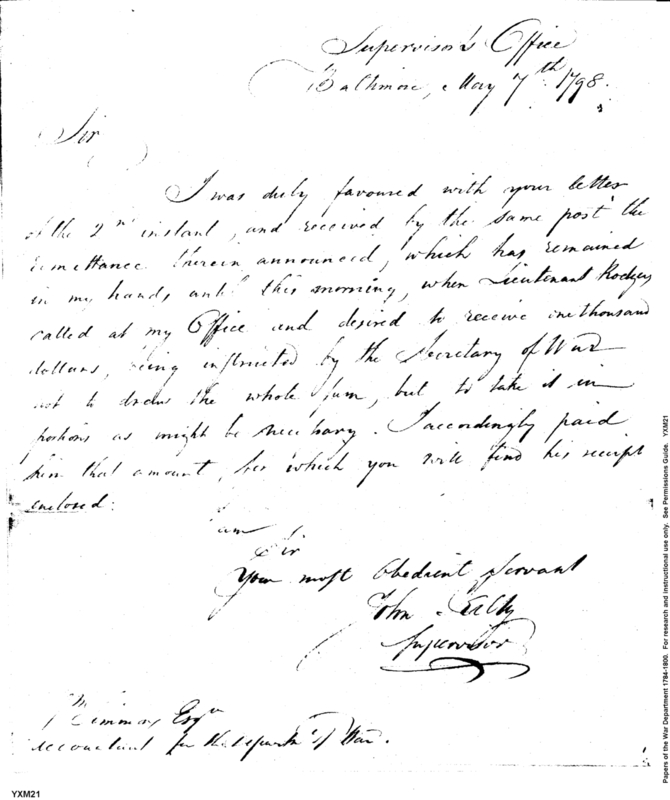 Supervisor's Office
Baltimore, May 7th 1798.
Sir
I was duly favoured with your letter
of the 2nd instant, and received by the same post the
remittance therein announced, which has remained
in my hands until this morning, when Lieutenant Rodgers
called at my Office and desired to receive one thousand
dollars, being instructed by the Secretary of War
not to draw the whole sum, but to take it in
portions as might be necessary. I accordingly paid
him that amount, for which you will find his receipt
enclosed.
I am
Sir
Your most Obedient Servant
John
Supervisor
Simmons Esqr
Accountant for the Departmt of War.
YXM21
Papers of the War Department 1784-1800. For research and instructional use only. See Permissions Guide. YXM21